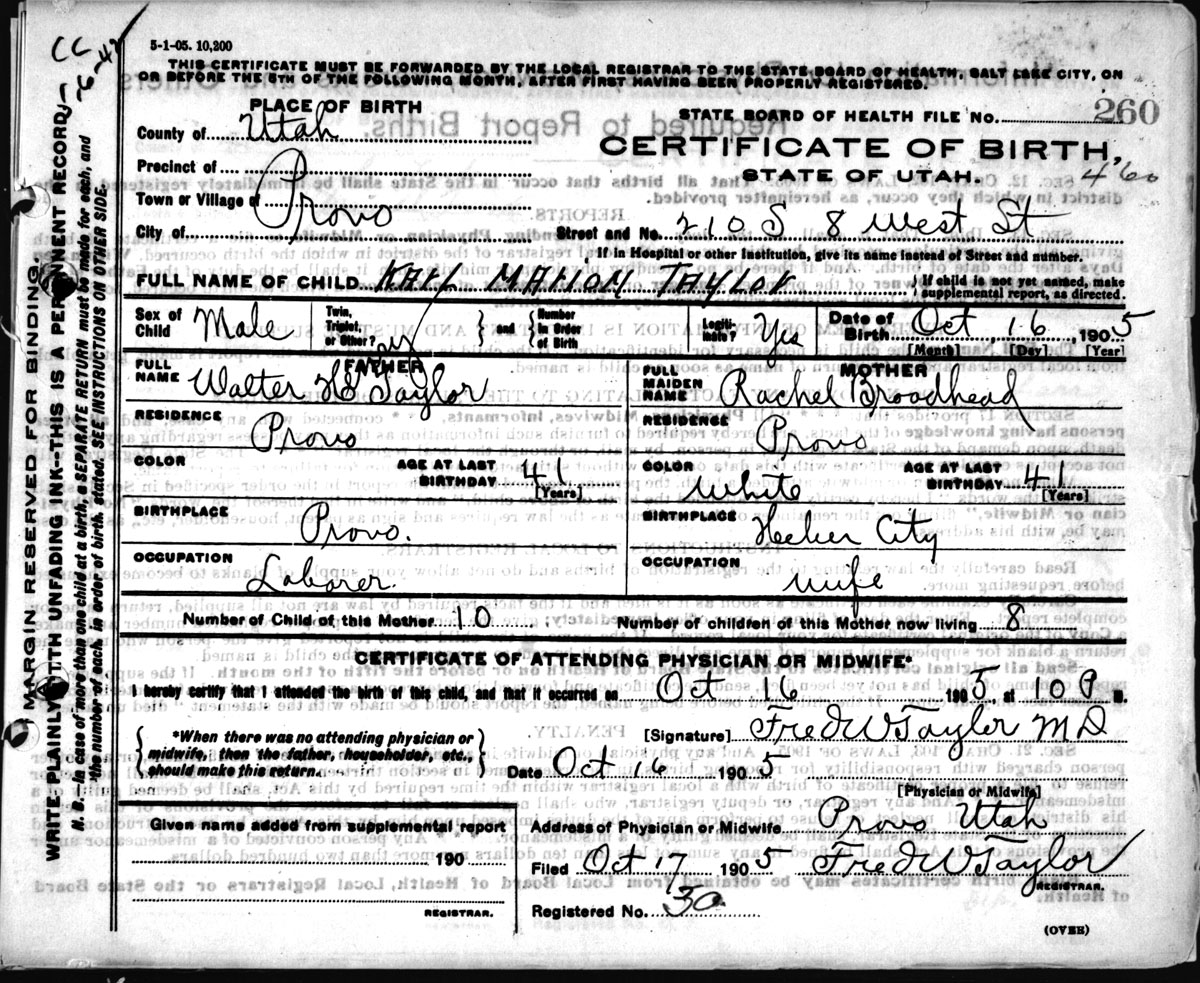 5-1-05. 10,200
THIS CERTIFICATE MUST BE FORWARDED BY THE LOCAL REGISTRAR TO THE STATE BOARD OF HEALTH, SALT LAKE CITY, ON
OR BEFORE THE 5TH OF THE FOLLOWING MONTH, AFTER FIRST HAVING BEEN PROPERLY REGISTERED.
PLACE OF BIRTH
STATE BOARD OF HEALTH FILE NO. 260
County of Utah
CERTIFICATE OF BIRTH,
Precinct of
STATE OF UTAH. 460
Town or Village of Provo
City of
Street and No. 210 S 8 West St
If in Hospital or other Institution, give its name instead of Street and number.
FULL NAME OF CHILD TAYLOR
If child is not yet named, make
supplemental report, as directed.
Sex of Child Male
Twin, Triplet, or Other?
and
Number in Order of Birth
Legitimate? Yes
Date of Birth Oct 16, 1905
[Month] [Day] [Year]
FATHER
FULL NAME Walter G Taylor
RESIDENCE Provo
COLOR
AGE AT LAST BIRTHDAY 41
[Years]
BIRTHPLACE Provo.
OCCUPATION Laborer.
MOTHER
FULL MAIDEN NAME Rachel Broadhead
RESIDENCE Provo
COLOR White
AGE AT LAST BIRTHDAY 41
[Years]
BIRTHPLACE Heber City
OCCUPATION Wife
Number of Child of this Mother 10 ; Number of children of this Mother now living 8
CERTIFICATE OF ATTENDING PHYSICIAN OR MIDWIFE*
I hereby certify that I attended the birth of this child, and that it occurred on Oct 16 1905, at 10 P M.
*When there was no attending physician or
midwife, then the father, householder, etc.,
should make this return.
[Signature] Fred W Taylor MD
Date Oct 16 1905
[Physician or Midwife]
Given name added from supplemental report
190
REGISTRAR.
Address of Physician or Midwife Provo Utah
Filed Oct 17 1905 Fred W Taylor
REGISTRAR.
Registered No. 30
(OVER)
MARGIN RESERVED FOR BINDING.
WRITE PLAINLY WITH UNFADING INK--THIS IS A PERMANENT RECORD.
N. B.--In case of more than one child at a birth, a SEPARATE RETURN must be made for each, and
the number of each, in order of birth, stated. SEE INSTRUCTIONS ON OTHER SIDE.